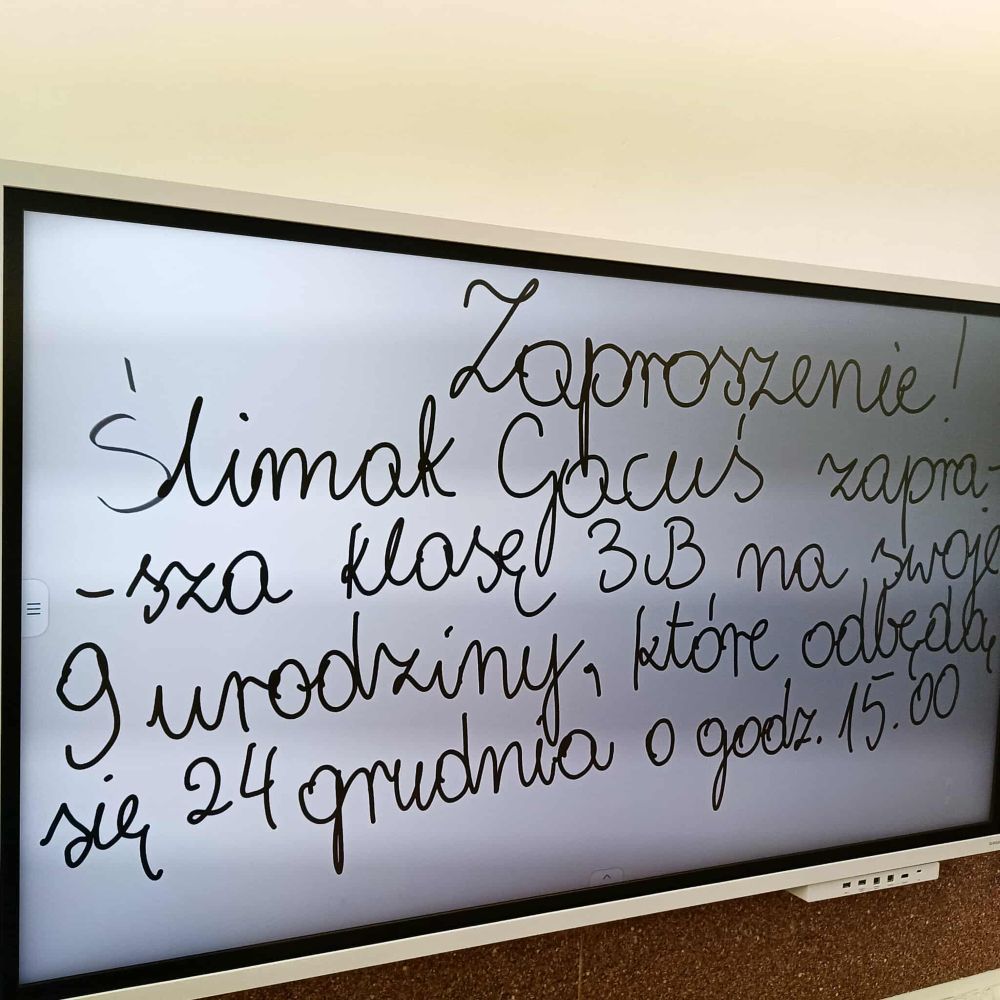 Zaproszenie!
Ślimak Gacuś zapra-
-sza klasę 3B na swoje
9 urodziny, które odbędą
się 24 grudnia o godz. 15.00